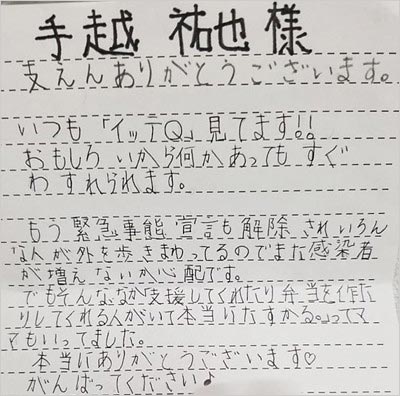 手越 祐也 様
支えんありがとうございます。
いつも「イッテQ」見てます!!
おもしろいから何かあってもすぐ
わすれられます。
もう緊急事態宣言も解除されいろん
な人が外を歩きまわってるのでまた感染者
が増えないか心配です。
でもそんななか支援してくれたり弁当を作た
りしてくれる人がいて本当にたすかる。ってマ
マもいってました。
本当にありがとうございます♡
がんばってください♪